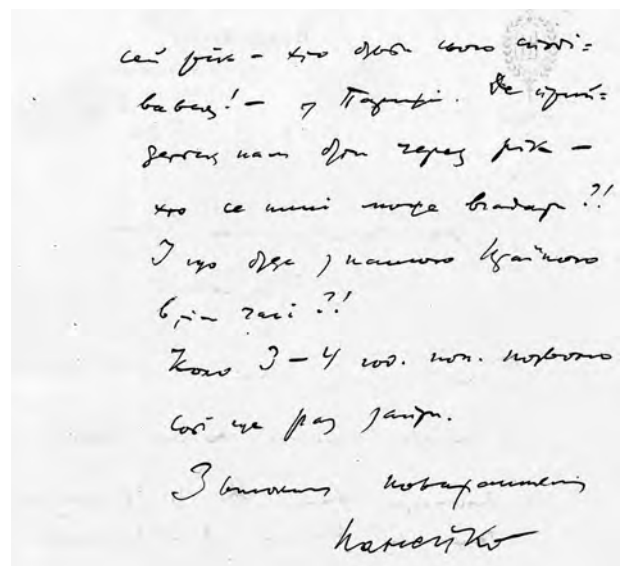 сей рік – хто був би сього сподї=
вавсь! – у Парижі. Де прий=
деться нам бути через рік –
хто се нині може вгадати?!
І що буде з нашою Країною
в тім часі?!
Коло 3–4 год. поп. позволю
собі ще раз зайти.
З високим поважанням
Панейко